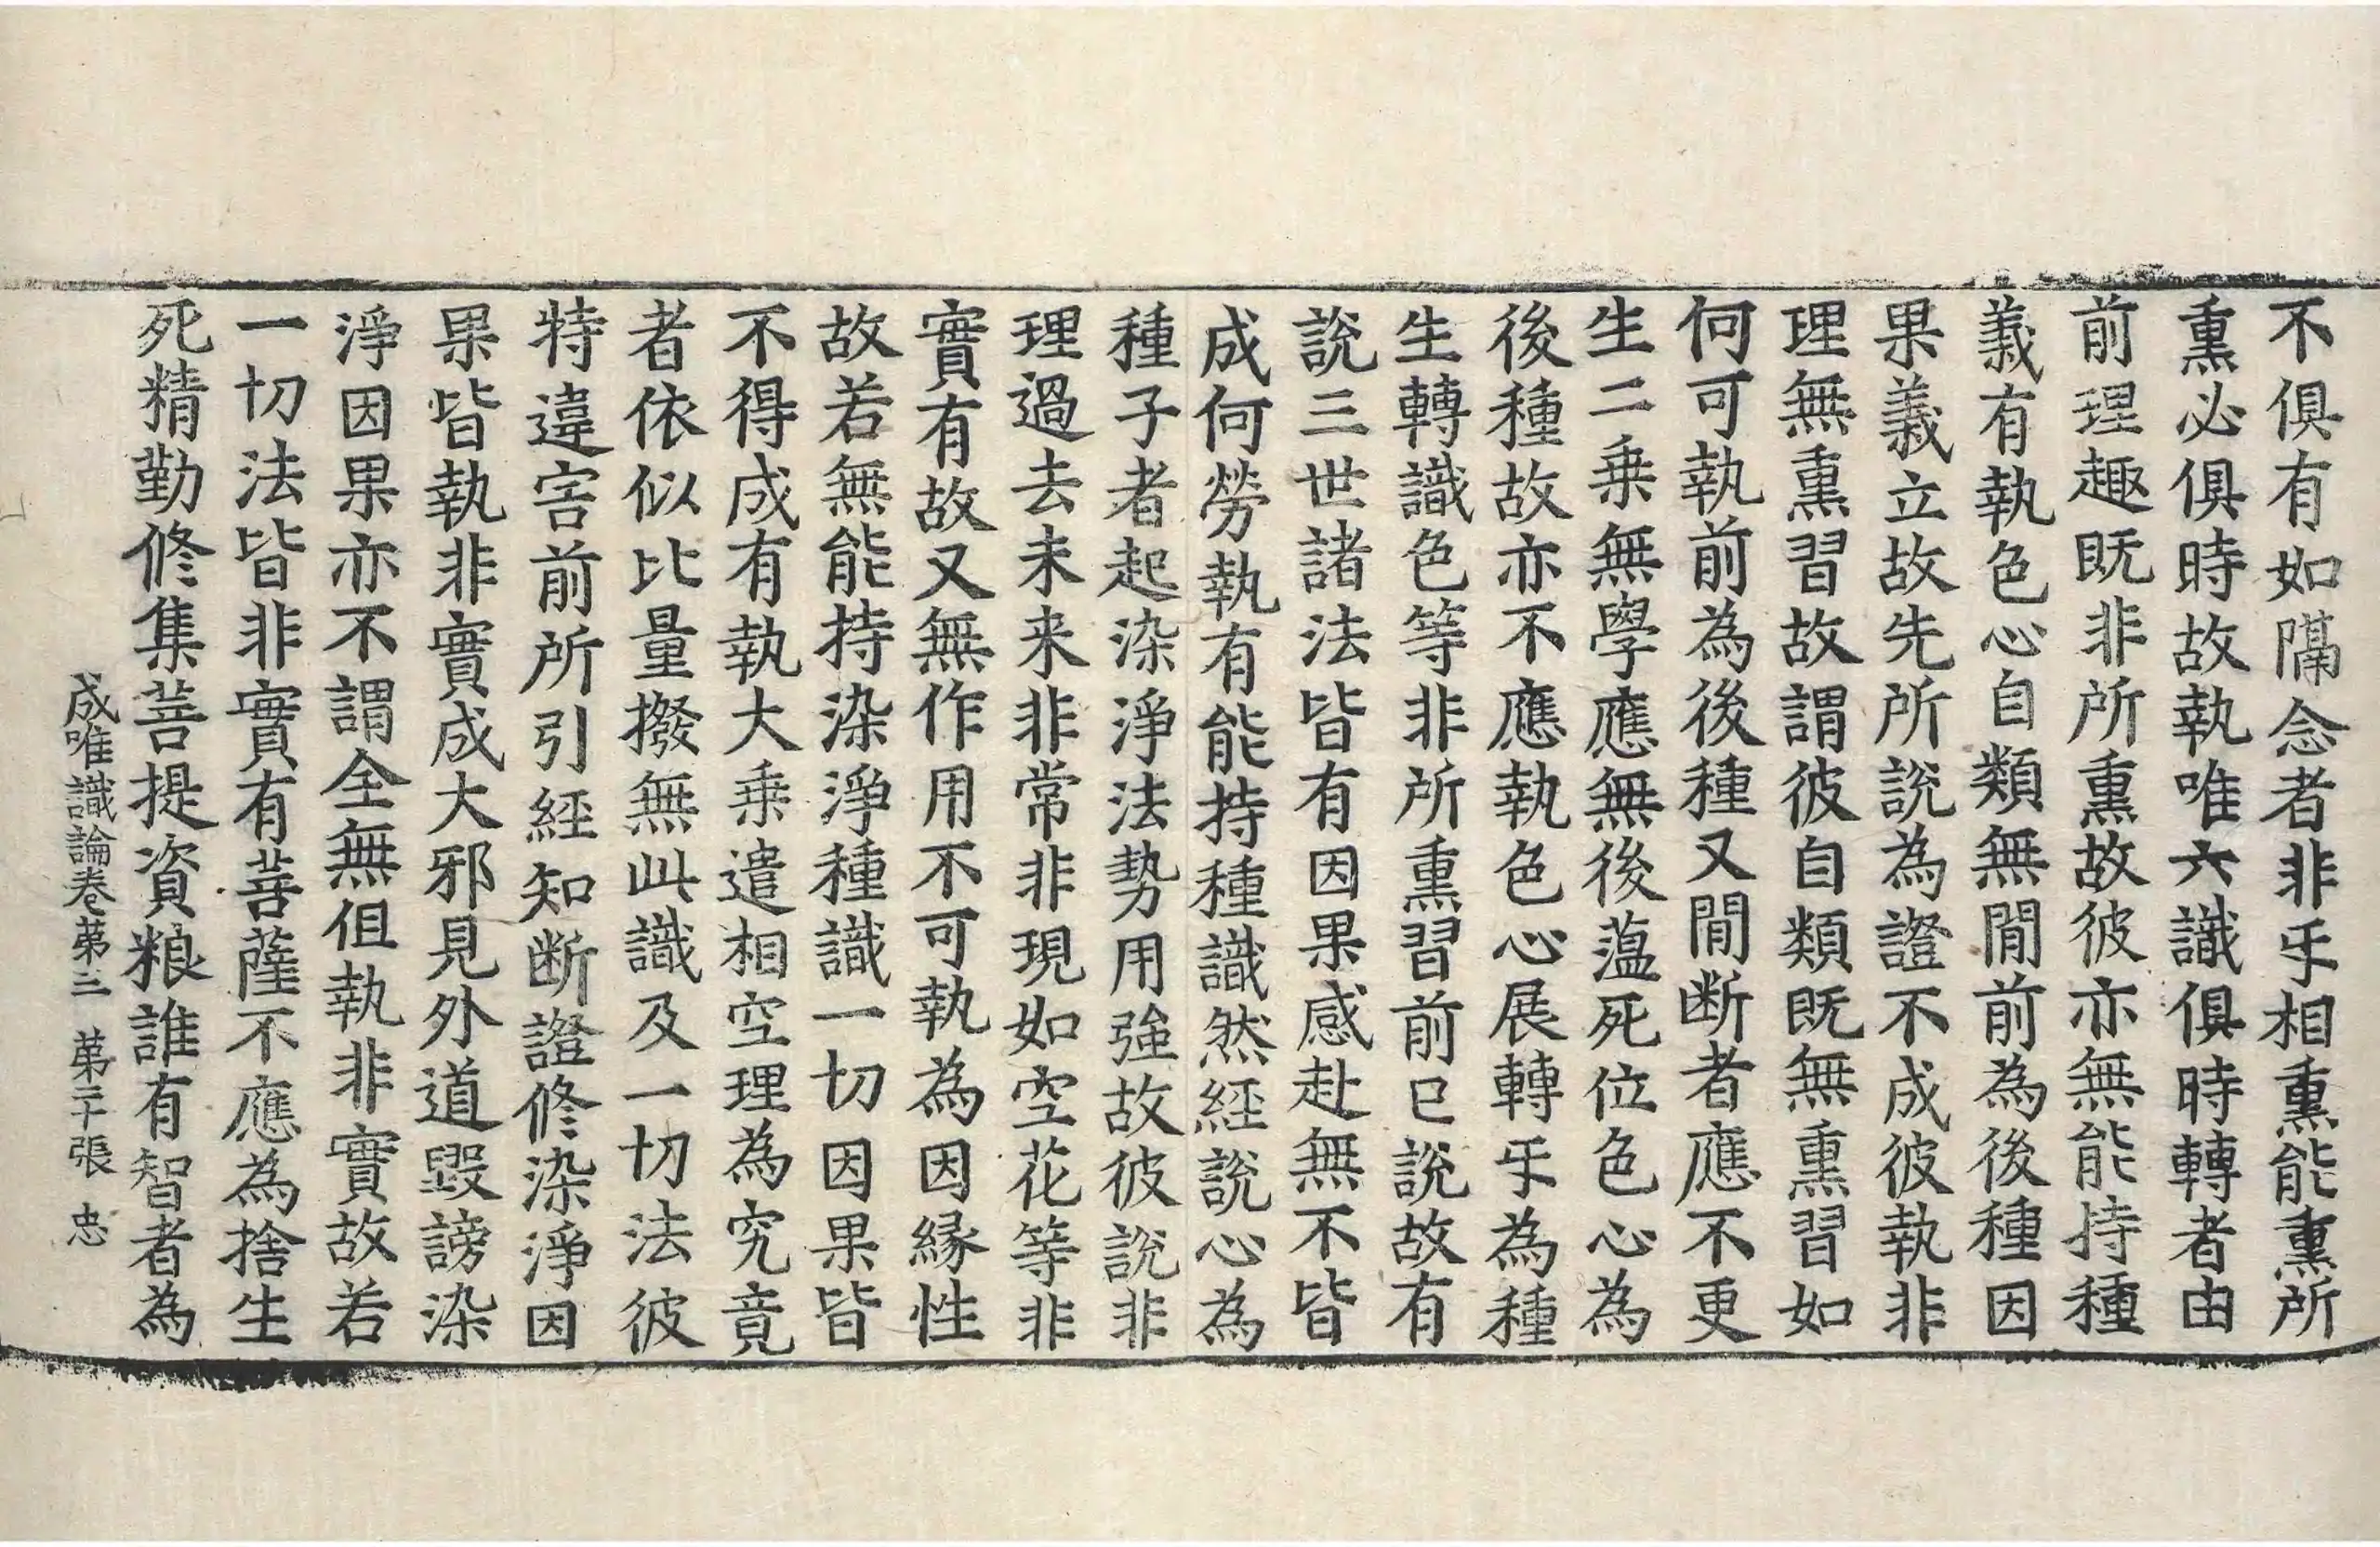 不俱有如隔念者非㸦相熏能熏所
熏必俱時故執唯六識俱時轉者由
前理趣既非所熏故彼亦無能持種
義有執色心自類無間前為後種因
果義立故先所說為證不成彼執非
理無熏習故謂彼自類既無熏習如
何可執前為後種又間断者應不更
生二乗無學應無後蕰死位色心為
後種故亦不應執色心展轉㸦為種
生轉識色等非所熏習前已說故有
說三世諸法皆有因果感赴無不皆
成何勞執有能持種識然経說心為
種子者起染淨法勢用強故彼說非
理過去未来非常非現如空花等非
實有故又無作用不可執為因緣性
故若無能持染淨種識一切因果皆
不得成有執大乗遣相空理為究竟
者依似比量撥無此識及一切法彼
特違害前所引經知断證修染淨因
果皆執非實成大邪見外道毀謗染
淨因果亦不謂全無但執非實故若
一切法皆非實有菩薩不應為捨生
死精勤修集菩提資粮誰有智者為
成唯識論卷苐三　苐二十張　忠